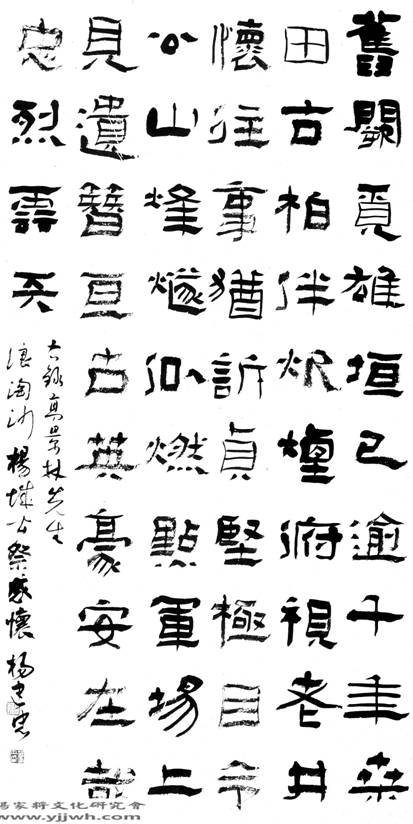 舊闕覓雄垣已逾千年桑
田古柏伴炊煙俯視老井
懷往事猶訴貞堅極目令
公山烽燧似燃點軍場上
見遺簪亘古英豪安在哉
忠烈雲天
右錄高景林先生
浪淘沙楊城公祭感懷 楊建忠
楊家將文化研究會
www.yjjwh.com